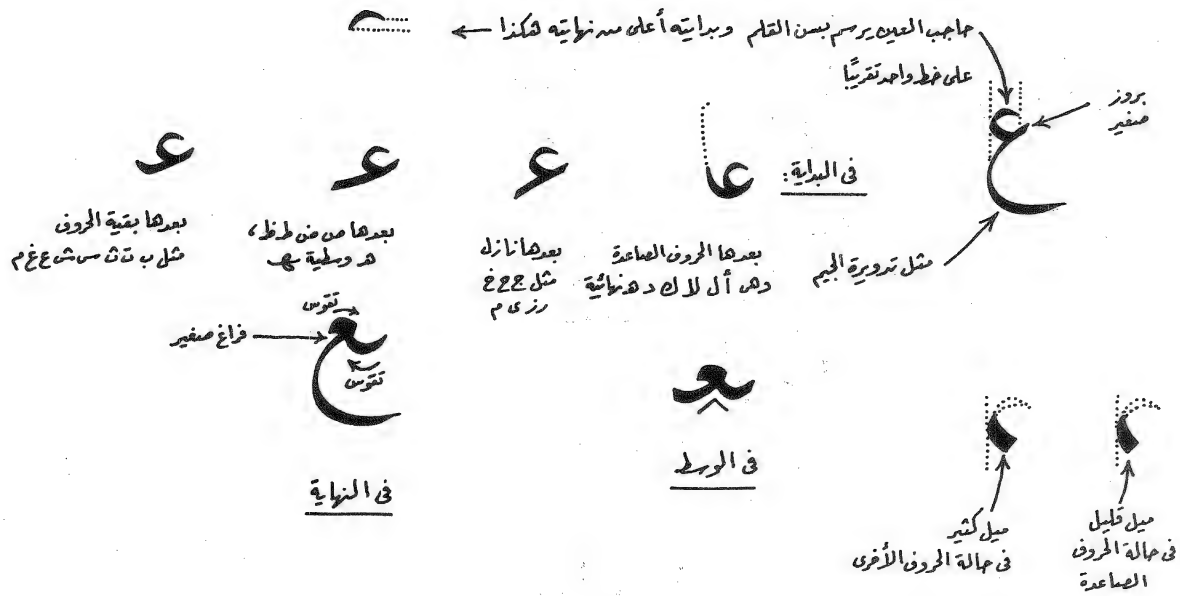 حاجب العين يرسم بسن القلم وبدايته أعلى من نهايته هكذا
على خط واحد تقريبًا
بروز
صغير
ع
مثل تدويرة الجيم
فى البداية:
عا
بعدها الحروف الصاعدة
وهى أ ل لا ك د ه نهائية
بعدها نازل
مثل ج ح خ
ر ز ى م
بعدها ص ض ط ظ،
ه وسطية ـهـ
بعدها بقية الحروف
مثل ب ت ث س ش ع غ م
تقوس
فراغ صغير
ـع
تقوس
فى النهاية
ـعـ
فى الوسط
ميل كثير
فى حالة الحروف الأخرى
ميل قليل
فى حالة الحروف
الصاعدة